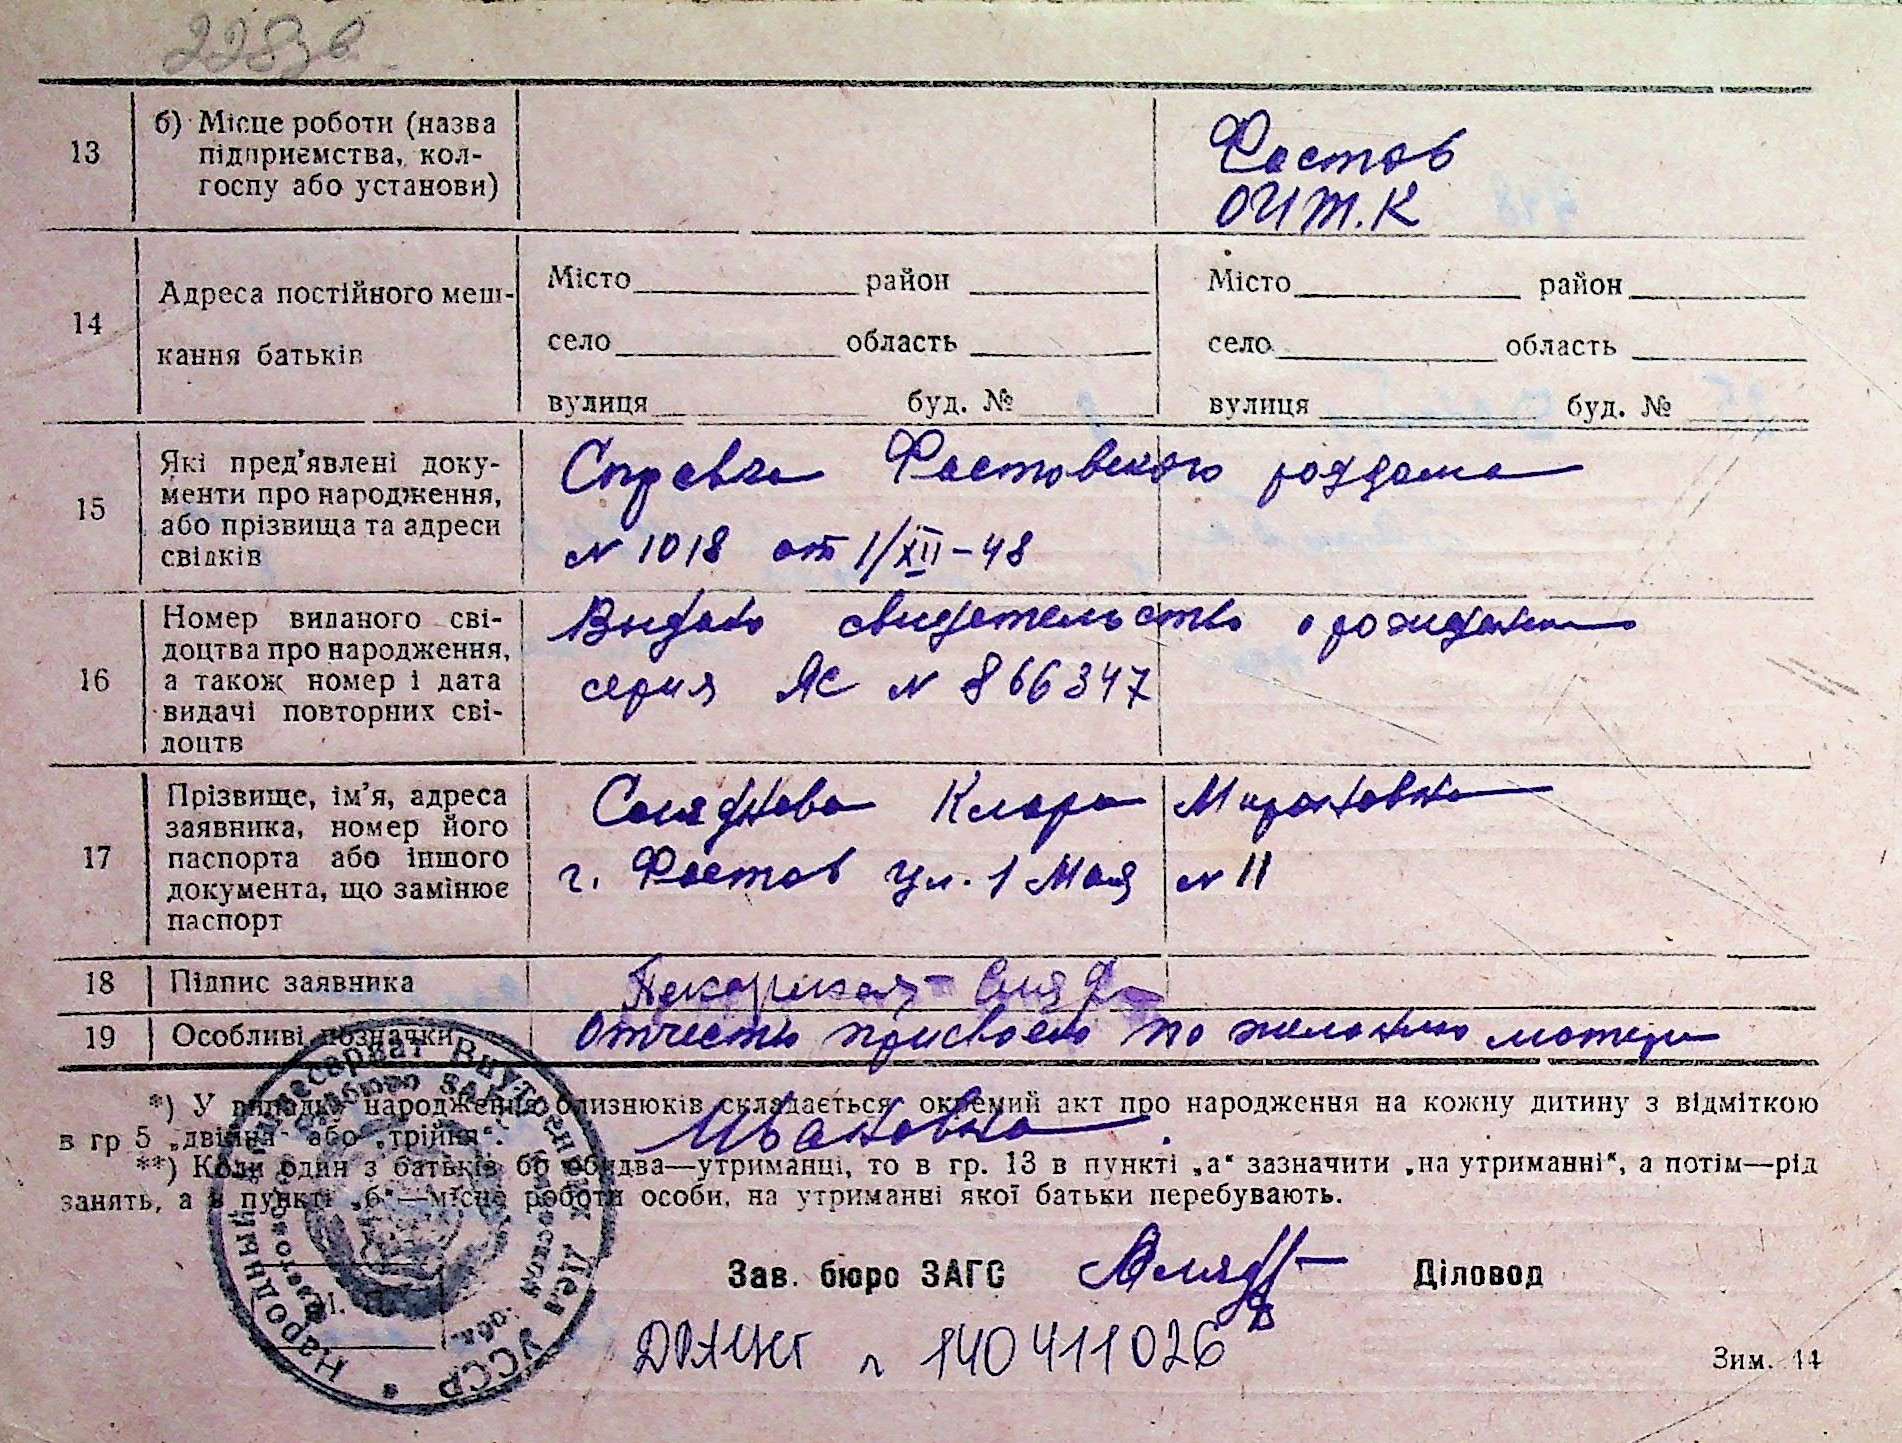 228зв
13
б) Місце роботи (назва
підприємства, кол-
госпу або установи)
Фастов
14
Адреса постійного меш-
кання батьків
Місто район
село область
вулиця буд. №
Місто район
село область
вулиця буд. №
15
Які пред'явлені доку-
менти про народження,
або прізвища та адреси
свідків
Справка Фастовского роддома
№ 1018 от 1/XII-48
16
Номер виданого сві-
доцтва про народження,
а також номер і дата
видачі повторних сві-
доцтв
Выдано свидетельство о рождении
серия ЯС № 866347
17
Прізвище, ім'я, адреса
заявника, номер його
паспорта або іншого
документа, що замінює
паспорт
Клара Мироновна
г. Фастов ул. 1 Мая № 11
18
Підпис заявника
19
Особливі позначки
Отчество присвоено по желанию матери
*) У випадку народження близнюків складається окремий акт про народження на кожну дитину з відміткою
Ивановна
в гр 5 „двійня" або „трійня".
**) Коли один з батьків бо обидва—утриманці, то в гр. 13 в пункті „а" зазначити „на утриманні", а потім—рід
занять, а в пункті „б"—місце роботи особи, на утриманні якої батьки перебувають.
Народный Комиссариат Внутренних Дел УССР
Зав. бюро ЗАГС
Діловод
ДРАЦСГ 140411026
Зим. 14